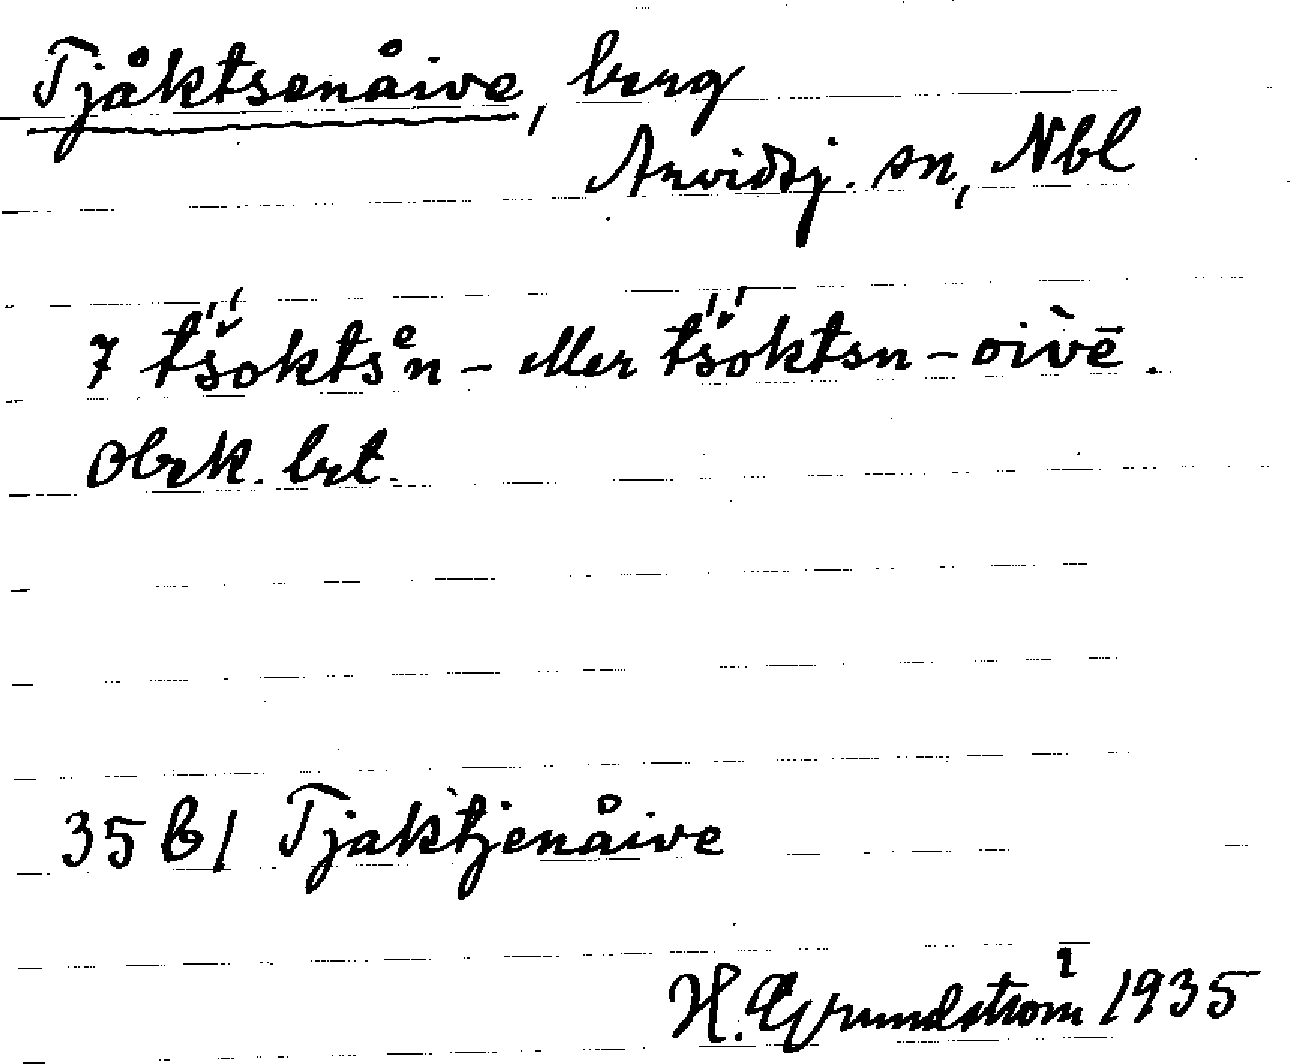 Tjåktsenåive, berg
Arvidsj. sn, Nbl
7 t̀š́oktsᵉn- eller t̀š́oktsn-oìvē.
Obek. bet.
35 B/ Tjaktjenåive
H. Grundström 1935